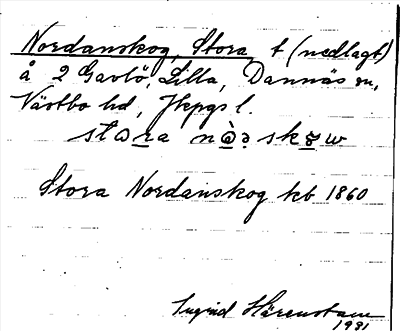 Nordanskog, Stora t (nedlagt)
å 2 Gavlö, Lilla, Dannäs sn,
Västbo hd, Jkpgs l.
stora nòǝskow
Stora Nordanskog kb 1860
Ingrid Härenstam
1931